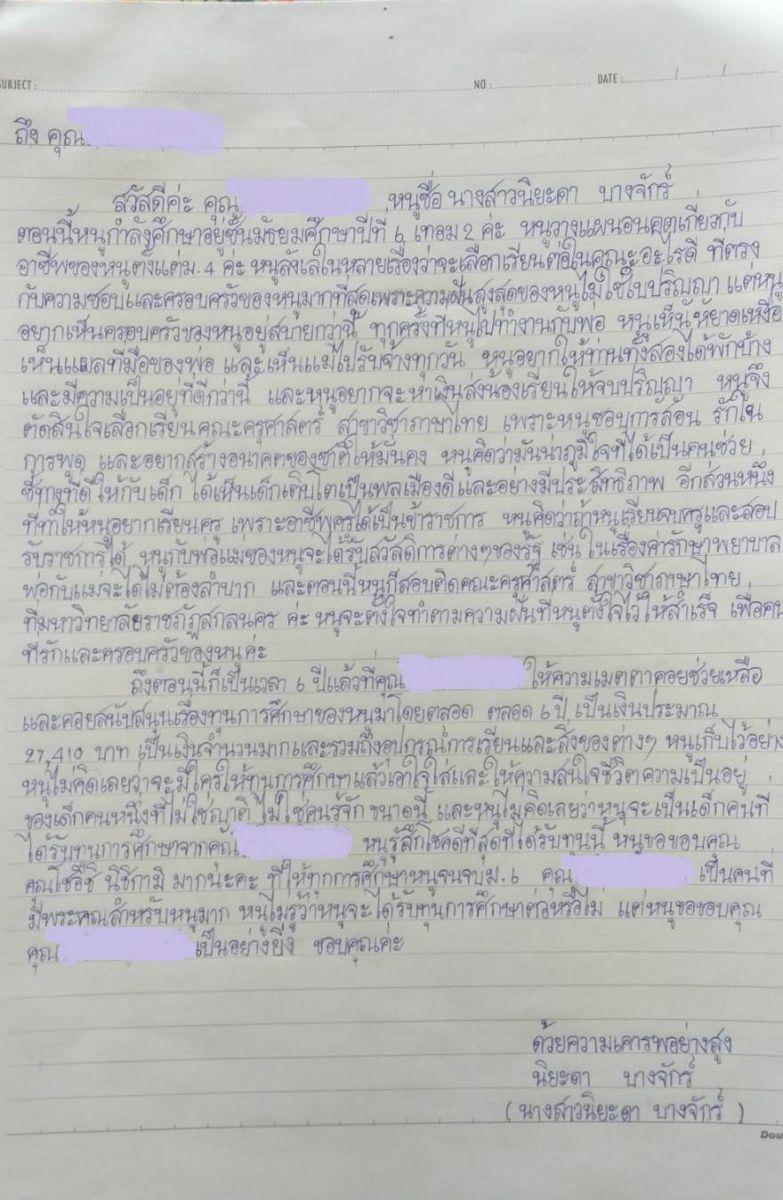 SUBJECT :
NO :
DATE : / /
ถึง คุณ
สวัสดีค่ะ คุณ หนูชื่อ นางสาวนิยะดา บางจักร์
ตอนนี้หนูกำลังศึกษาอยู่ชั้นมัธยมศึกษาปีที่ 6 เทอม 2 ค่ะ หนูวางแผนอนาคตเกี่ยวกับ
อาชีพของหนูตั้งแต่ม.4 ค่ะ หนูลังเลในหลายเรื่องว่าจะเลือกเรียนต่อในคณะอะไรดี ที่ตรง
กับความชอบและครอบครัวของหนูมากที่สุดเพราะความฝันสูงสุดของหนูไม่ใช่ใบปริญญา แต่หนู
อยากเห็นครอบครัวของหนูอยู่สบายกว่านี้ ทุกครั้งที่หนูไปทำงานกับพ่อ หนูเห็นหยาดเหงื่อ
เห็นแผลที่มือของพ่อ และเห็นแม่ไปรับจ้างทุกวัน หนูอยากให้ท่านทั้งสองได้พักบ้าง
และมีความเป็นอยู่ที่ดีกว่านี้ และหนูอยากจะหาเงินส่งน้องเรียนให้จบปริญญา หนูจึง
ตัดสินใจเลือกเรียนคณะครุศาสตร์ สาขาวิชาภาษาไทย เพราะหนูชอบการสอน รักใน
การพูด และอยากสร้างอนาคตของชาติให้มั่นคง หนูคิดว่ามันน่าภูมิใจที่ได้เป็นคนช่วย
ชี้ทางที่ดีให้กับเด็ก ได้เห็นเด็กเติบโตเป็นพลเมืองดีและอย่างมีประสิทธิภาพ อีกส่วนหนึ่ง
ที่ทำให้หนูอยากเรียนครู เพราะอาชีพครูได้เป็นข้าราชการ หนูคิดว่าถ้าหนูเรียนจบครูและสอบ
รับราชการได้ หนูกับพ่อแม่ของหนูจะได้รับสวัสดิการต่างๆของรัฐ เช่น ในเรื่องค่ารักษาพยาบาล
พ่อกับแม่จะได้ไม่ต้องลำบาก และตอนนี้หนูก็สอบติดคณะครุศาสตร์ สาขาวิชาภาษาไทย
ที่มหาวิทยาลัยราชภัฏสกลนคร ค่ะ หนูจะตั้งใจทำตามความฝันที่หนูตั้งใจไว้ให้สำเร็จ เพื่อคน
ที่รักและครอบครัวของหนูค่ะ
ถึงตอนนี้ก็เป็นเวลา 6 ปีแล้วที่คุณ ให้ความเมตตาคอยช่วยเหลือ
และคอยสนับสนุนเรื่องทุนการศึกษาของหนูมาโดยตลอด ตลอด 6 ปี เป็นเงินประมาณ
27,410 บาท เป็นเงินจำนวนมากและรวมถึงอุปกรณ์การเรียนและสิ่งของต่างๆ หนูเก็บไว้อย่าง
หนูไม่คิดเลยว่าจะมีใครให้ทุนการศึกษาแล้วเอาใจใส่และให้ความสนใจชีวิตความเป็นอยู่
ของเด็กคนหนึ่งที่ไม่ใช่ญาติ ไม่ใช่คนรู้จัก ขนาดนี้ และหนูไม่คิดเลยว่าหนูจะเป็นเด็กคนที่
ได้รับทุนการศึกษาจากคุณ หนูรู้สึกโชคดีที่สุดที่ได้รับทุนนี้ หนูขอขอบคุณ
คุณโชอิชิ นิชิกามิ มากนะคะ ที่ให้ทุกการศึกษาหนูจนจบม.6 คุณ เป็นคนที่
มีพระคุณสำหรับหนูมาก หนูไม่รู้ว่าหนูจะได้รับทุนการศึกษาต่อหรือไม่ แต่หนูขอขอบคุณ
คุณ เป็นอย่างยิ่ง ขอบคุณค่ะ
ด้วยความเคารพอย่างสูง
นิยะดา บางจักร์
( นางสาวนิยะดา บางจักร์ )